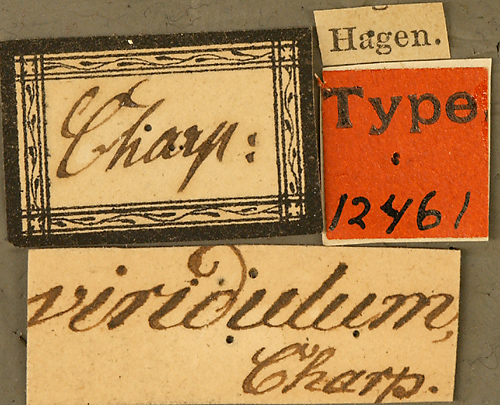 Hagen.
Charp:
Type
12461
viridulum,
Charp.